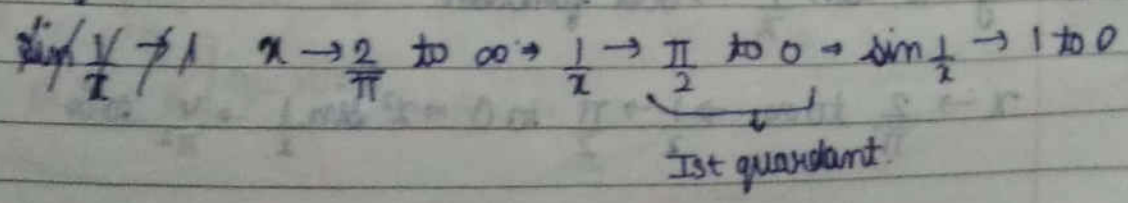 x → 2/π to ∞ → 1/x → π/2 to 0 → sin 1/x → 1 to 0
Ist quardant.